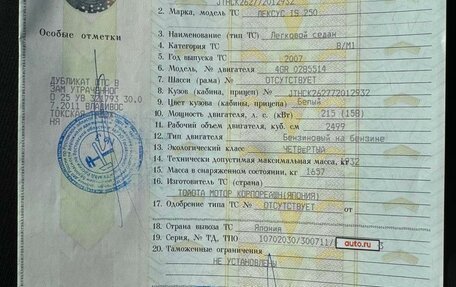 JTHCK262772012932
2. Марка, модель ТС ЛЕКСУС IS 250
Особые отметки
3. Наименование (тип ТС) Легковой седан
4. Категория ТС B/M1
5. Год выпуска ТС 2007
6. Модель, № двигателя 4GR 0285514
ДУБЛИКАТ ПТС В
ЗАМ УТРАЧЕННОГ
7. Шасси (рама) № ОТСУТСТВУЕТ
О 25 УВ 30.0
8. Кузов (кабина, прицеп) № JTHCK262772012932
7.2011 ВЛАДИВОС
9. Цвет кузова (кабины, прицепа) Белый
ТОКСКАЯ
10. Мощность двигателя, л. с. (кВт) 215 (158)
НЯ
11. Рабочий объем двигателя, куб. см 2499
12. Тип двигателя Бензиновый на бензине
13. Экологический класс ЧЕТВЕРТЫЙ
14. Технически допустимая максимальная масса, кг 1932
15. Масса в снаряженном состоянии, кг 1657
16. Изготовитель ТС (страна)
ТОЙОТА МОТОР КОРПОРЕЙШН(ЯПОНИЯ)
17. Одобрение типа ТС № ОТСУТСТВУЕТ
18. Страна вывоза ТС Япония
19. Серия, № ТД, ТПО 10702030/300711/
auto.ru
20. Таможенные ограничения
НЕ УСТАНОВЛЕНЫ